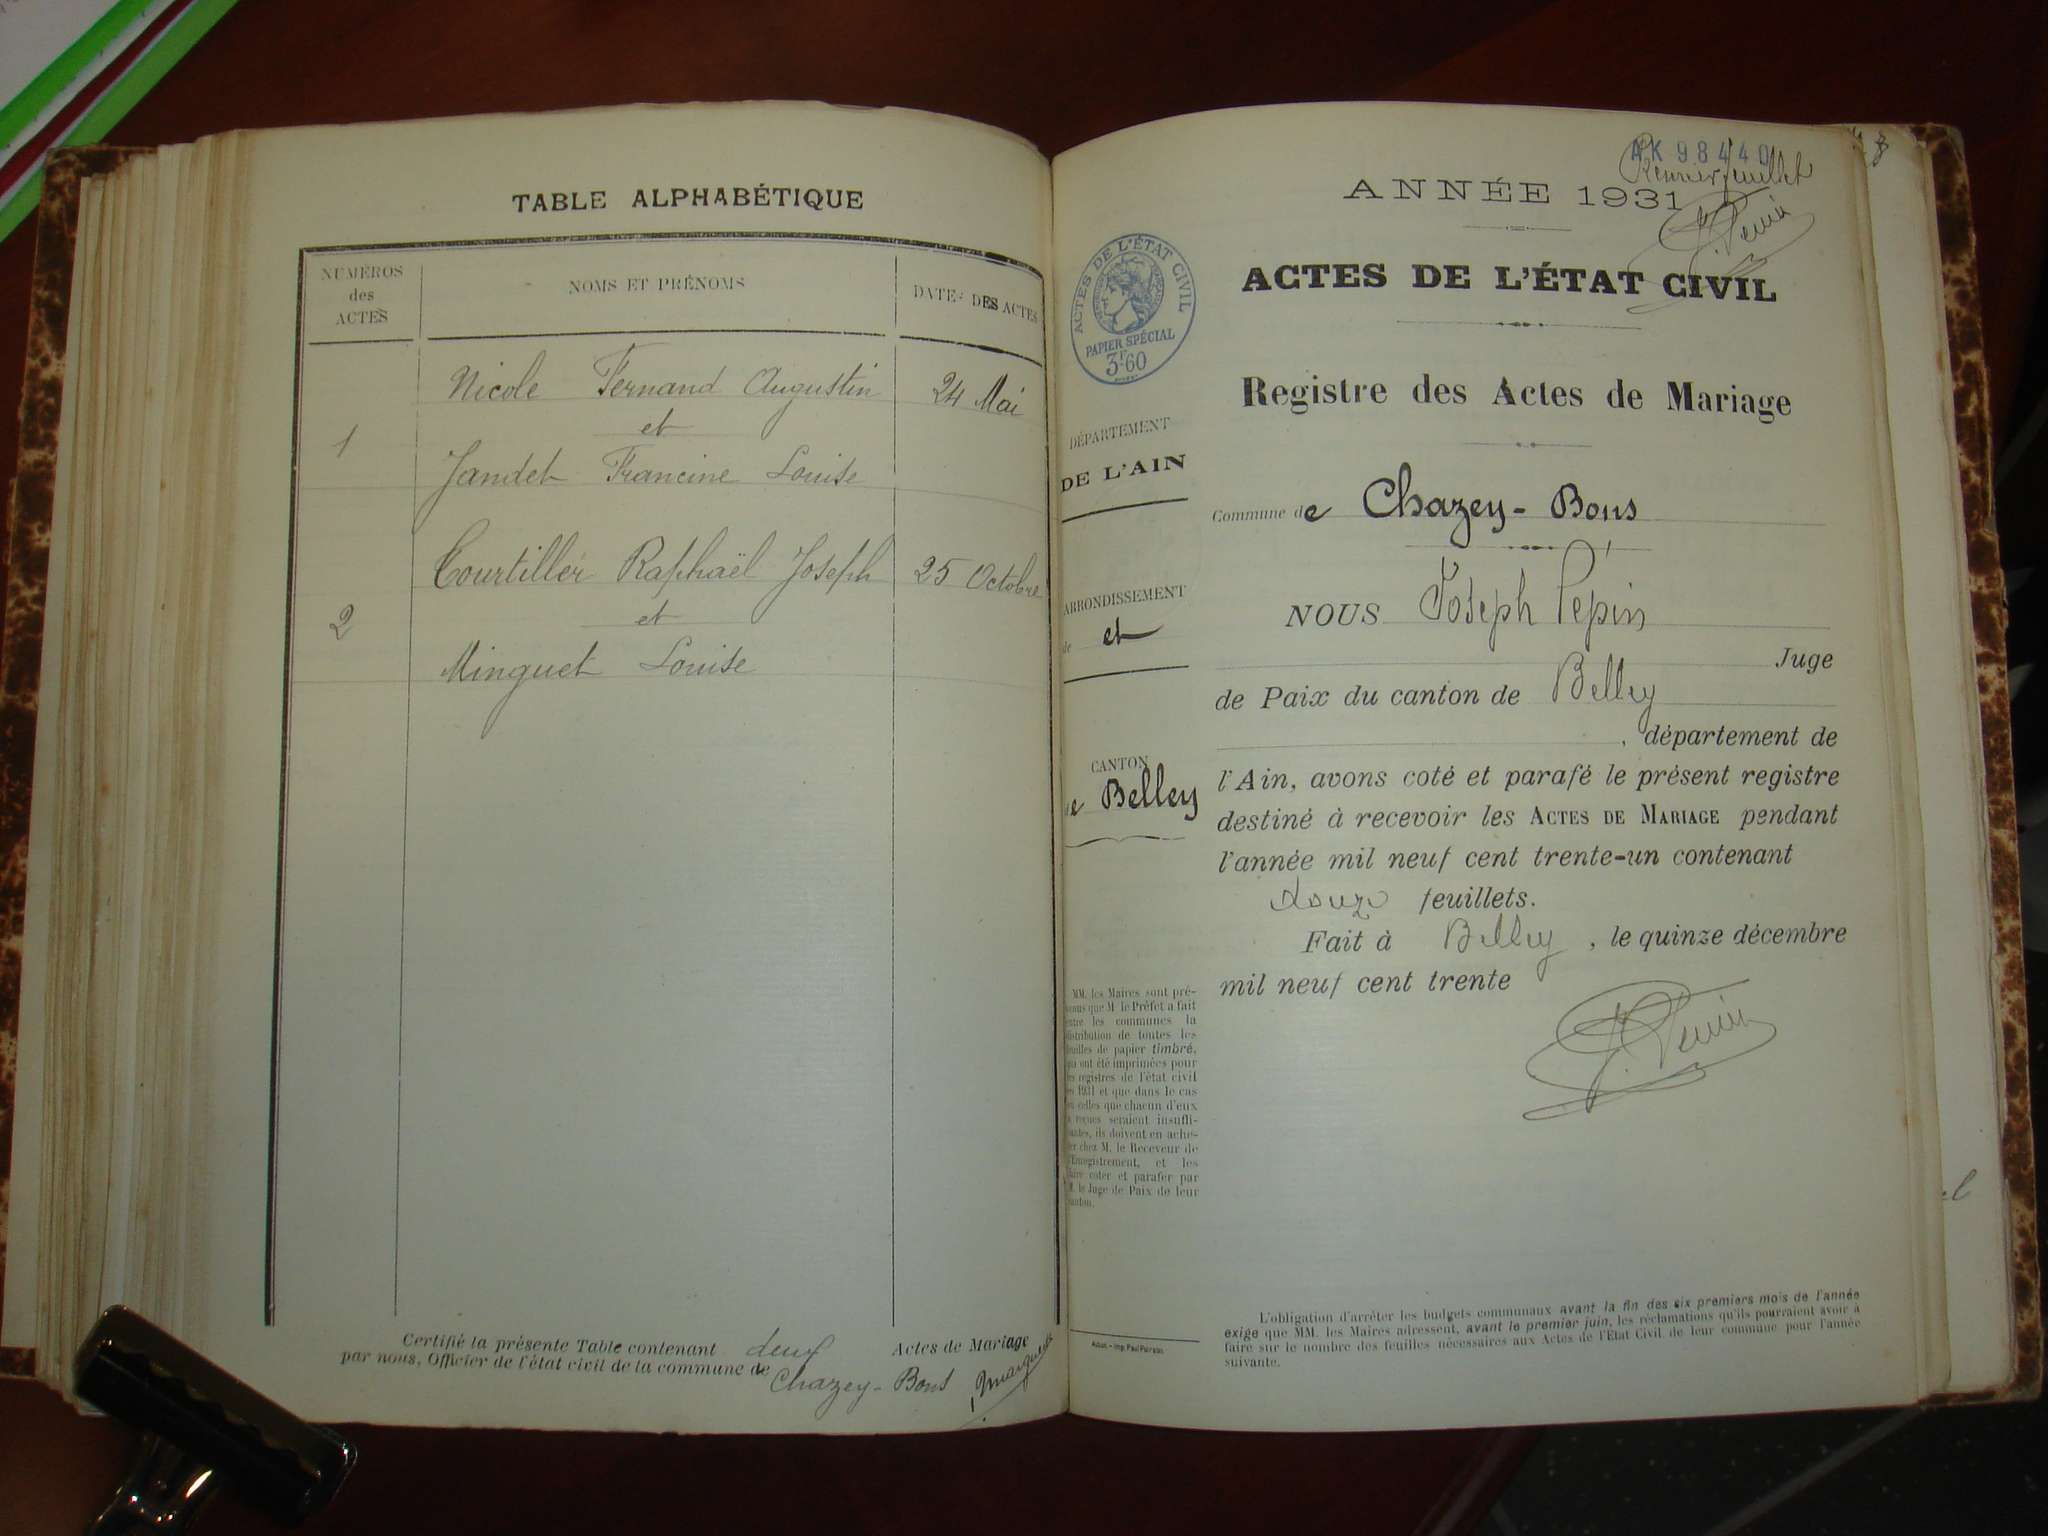 TABLE ALPHABÉTIQUE
NUMÉROS
des
ACTES
NOMS ET PRÉNOMS
DATES DES ACTES
Nicole Fernand Augustin
24 Mai
et
1
Jandet Francine Louise
Courtiller Raphaël Joseph
25 Octobre
et
2
Minguet Louise
Certifié la présente Table contenant deux Actes de Mariage
par nous, Officier de l'état civil de la commune de Chazey-Bons
AK 98440
Premier feuillet
ANNÉE 1931
ACTES DE L'ÉTAT CIVIL
PAPIER SPÉCIAL
3F.60
ACTES DE L'ÉTAT CIVIL
Registre des Actes de Mariage
DÉPARTEMENT
DE L'AIN
ARRONDISSEMENT
de et
CANTON
de Belley
Commune de Chazey-Bons
NOUS Joseph Pépin
Juge
de Paix du canton de Belley
, département de
l'Ain, avons coté et parafé le présent registre
destiné à recevoir les ACTES DE MARIAGE pendant
l'année mil neuf cent trente-un contenant
douze feuillets.
Fait à Belley, le quinze décembre
mil neuf cent trente
MM. les Maires sont pré-
venus que M. le Préfet a fait
entre les communes la
distribution de toutes les
feuilles de papier timbré,
qui ont été imprimées pour
les registres de l'état civil
de 1931 et que dans le cas
où celles que chacun d'eux
a reçues seraient insuffi-
santes, ils doivent en ache-
ter chez M. le Receveur de
l'Enregistrement, et les
faire coter et parafer par
M. le Juge de Paix de leur
canton.
L'obligation d'arrêter les budgets communaux avant la fin des six premiers mois de l'année
exige que MM. les Maires adressent, avant le premier juin, les réclamations qu'ils pourraient avoir à
faire sur le nombre des feuilles nécessaires aux Actes de l'État Civil de leur commune pour l'année
suivante.